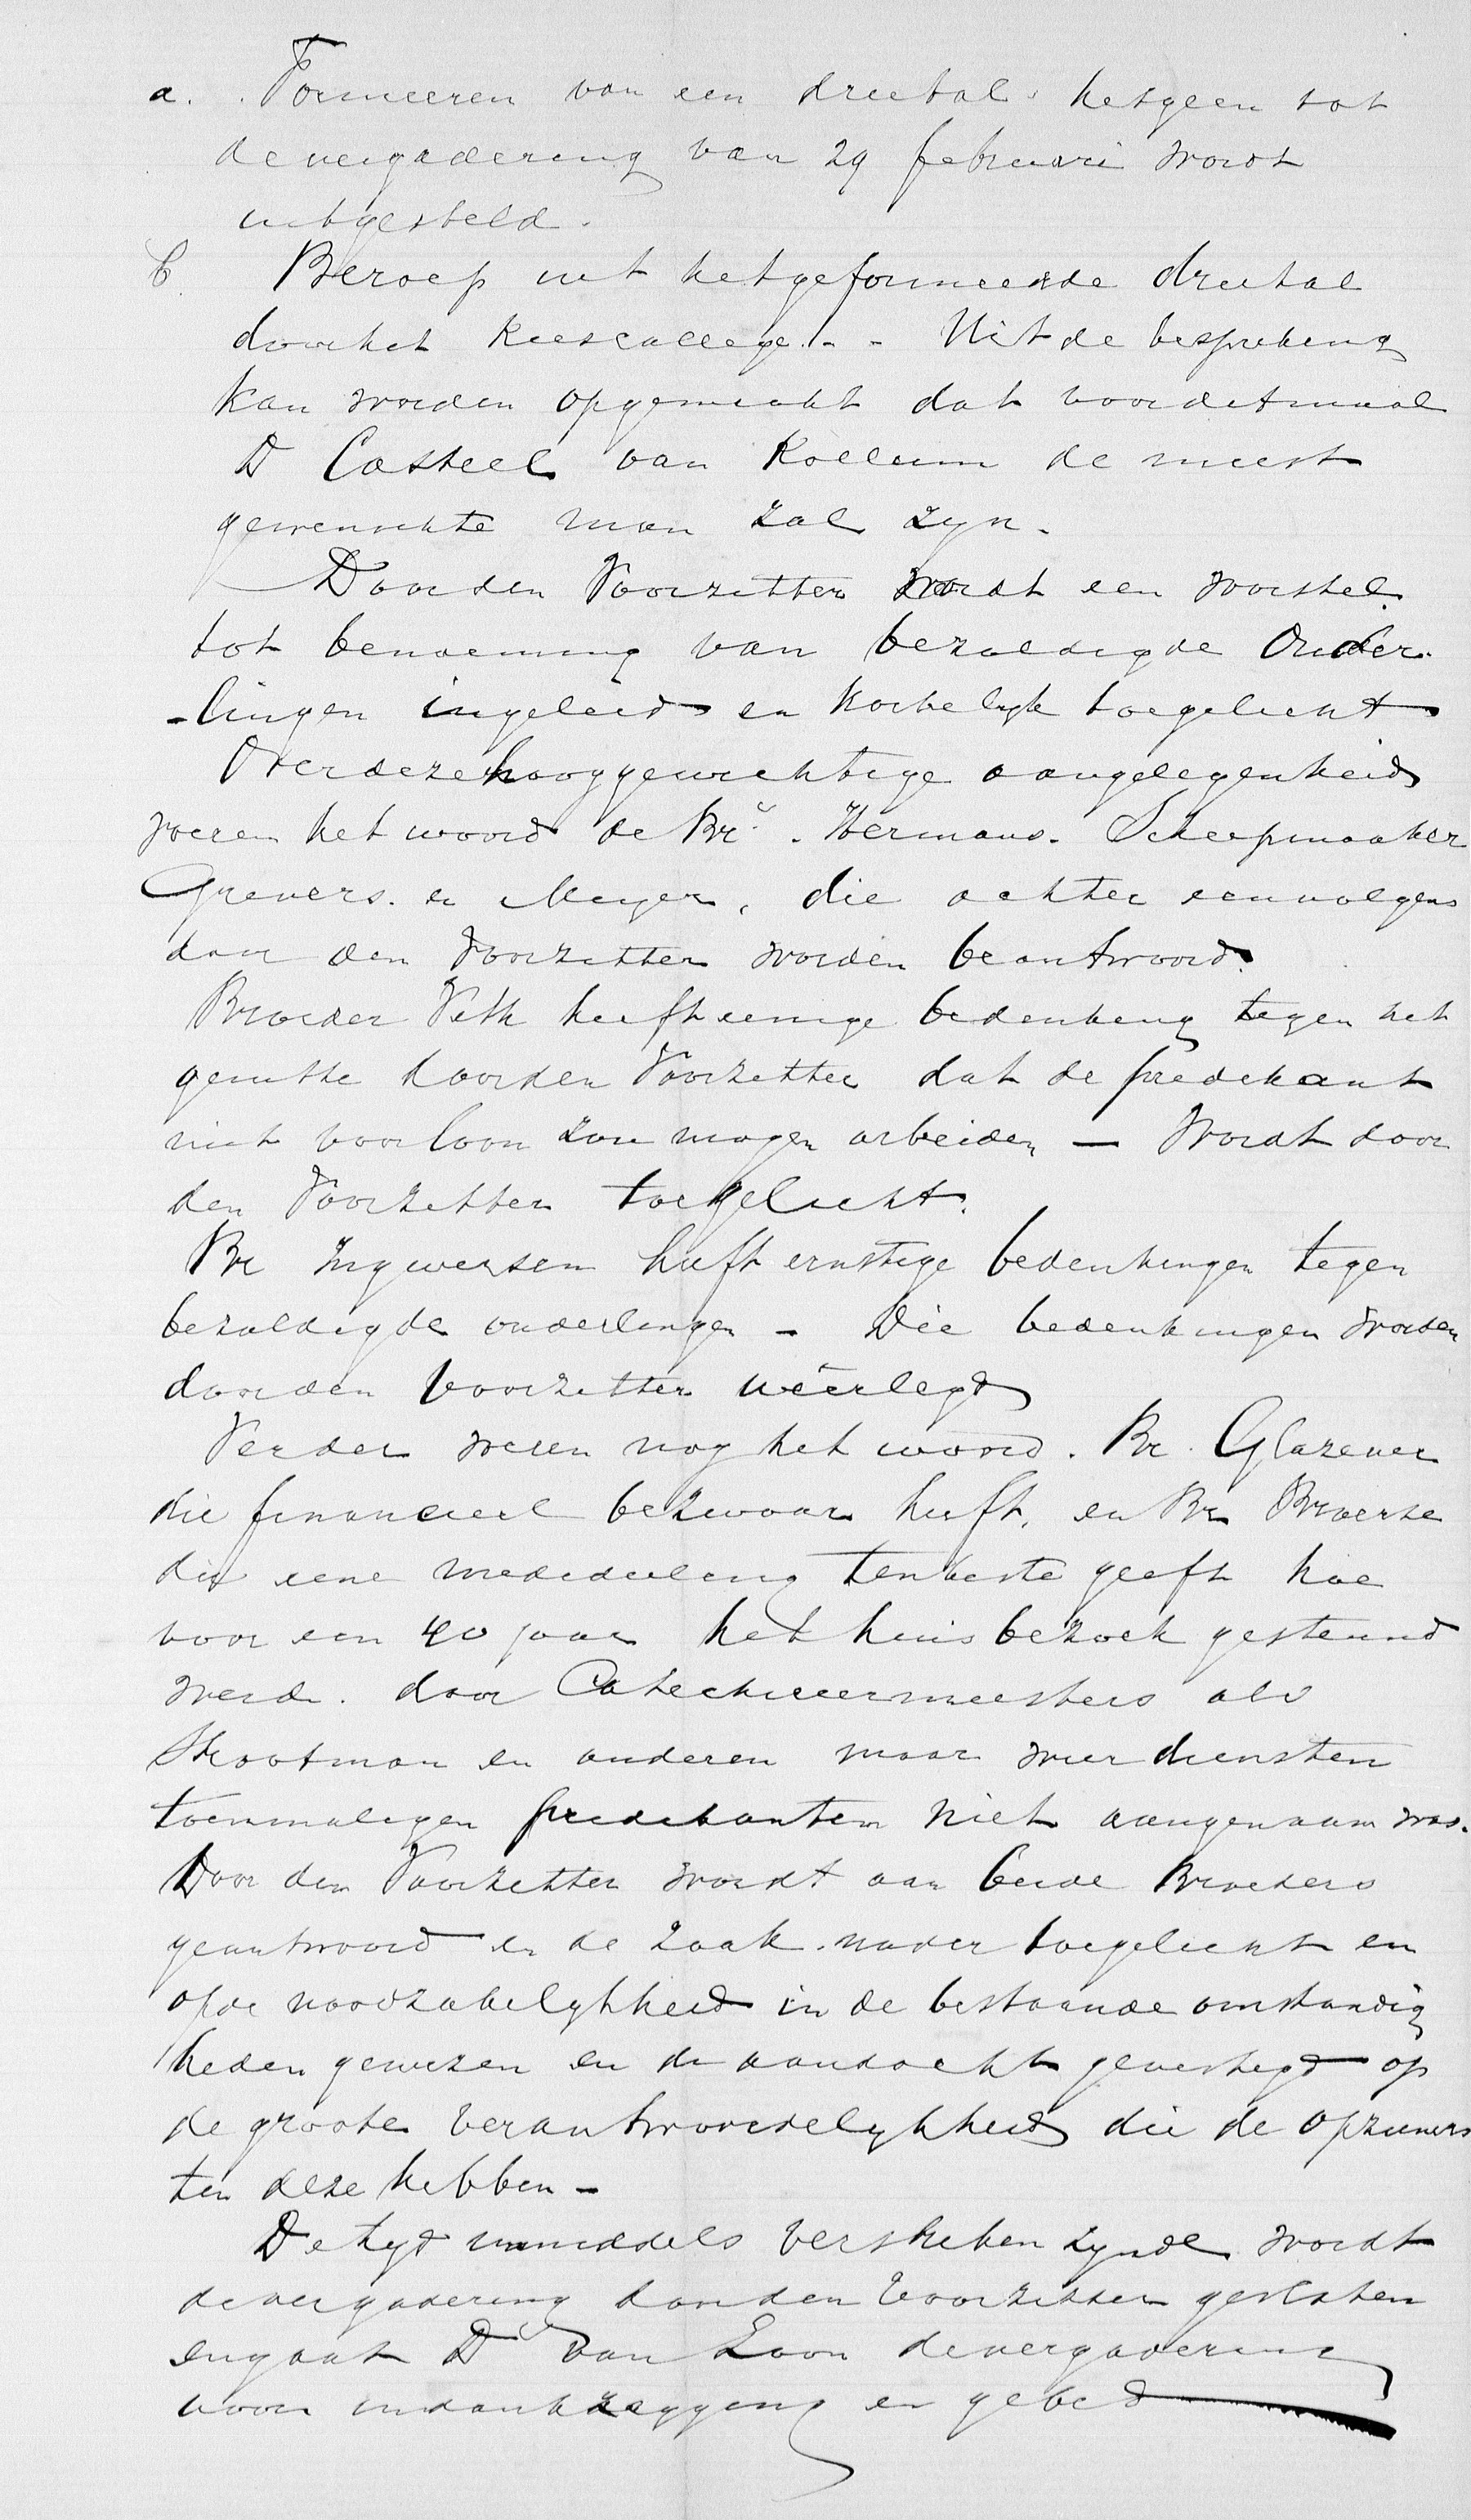 a. Formeeren van een drietal hetgeen tot
de vergadering van 29 februari wordt
uitgesteld.
b. Beroep uit het geformeerde drietal
door het Kiescollege. - Uit de bespreking
kan worden opgemaakt dat voor ditmaal
Ds Casteel van Kollum de meest
gewenschte man zal zyn.
Door den Voorzitter wordt een voorstel
tot benoeming van bezoldigde Ouder-
-lingen ingeleid en kortelyk toegelicht
Over deze hooggewichtige aangelegenheid
voeren het woord de Brs. Hermans. Scheepmaaker
Grevers. en Meyer, die achter eenvolgens
door den Voorzitter worden beantwoord.
Broeder Veth heeft eenige bedenking tegen het
geuitte door den Voorzitter dat de predekant
niet voor loon zou mogen arbeiden — Wordt door
den Voorzitter toegelicht.
Br Ingwersen heeft ernstige bedenkingen tegen
bezoldigde ouderlingen - Die bedenkingen worden
door den Voorzitter weêrlegd
Verder voeren nog het woord. Br. Glazener
die financieel bezwaar heeft, en Br Broerse
die eene mededeeling ten beste geeft hoe
voor een 40 jaar het huisbezoek gesteund
werd. door Catechiseermeesters als
Stootman en anderen maar wier diensten
toenmaligen predikanten niet aangenaam was.
Door den Voorzitter wordt aan beide Broeders
geantwoord en de zaak nader toegelicht en
op de noodzakelykheid in de bestaande omstandig
heden gewezen en de aandacht gevestigd op
de groote verantwoordelykheid die de opzieners
ten deze hebben -
De tyd inmiddels verstreken zynde wordt
de vergadering door den Voorzitter gesloten
en gaat Ds van Loon de vergadering
voor in dankzegging en gebed